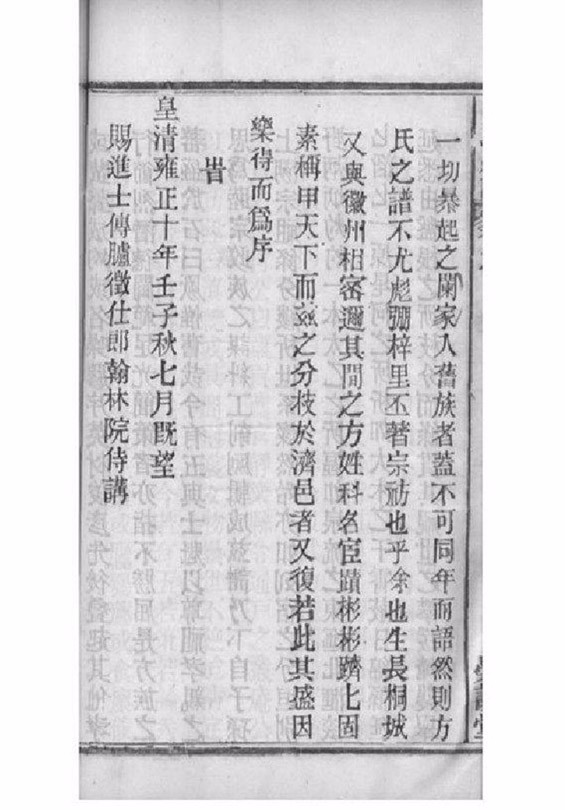 一切暴起之閥家入舊族者蓋不可同年而語然則方
氏之譜不尤彪彌梓里丕著宗祊也乎余也生長桐城
又與徽州相密邇其間之方姓科名宦蹟彬彬躋七固
素稱甲天下而茲之分枝於濟邑者又復若此其盛因
樂得而爲序
旹
皇清雍正十年壬子秋七月旣望
賜進士傳臚徵仕郎翰林院侍講